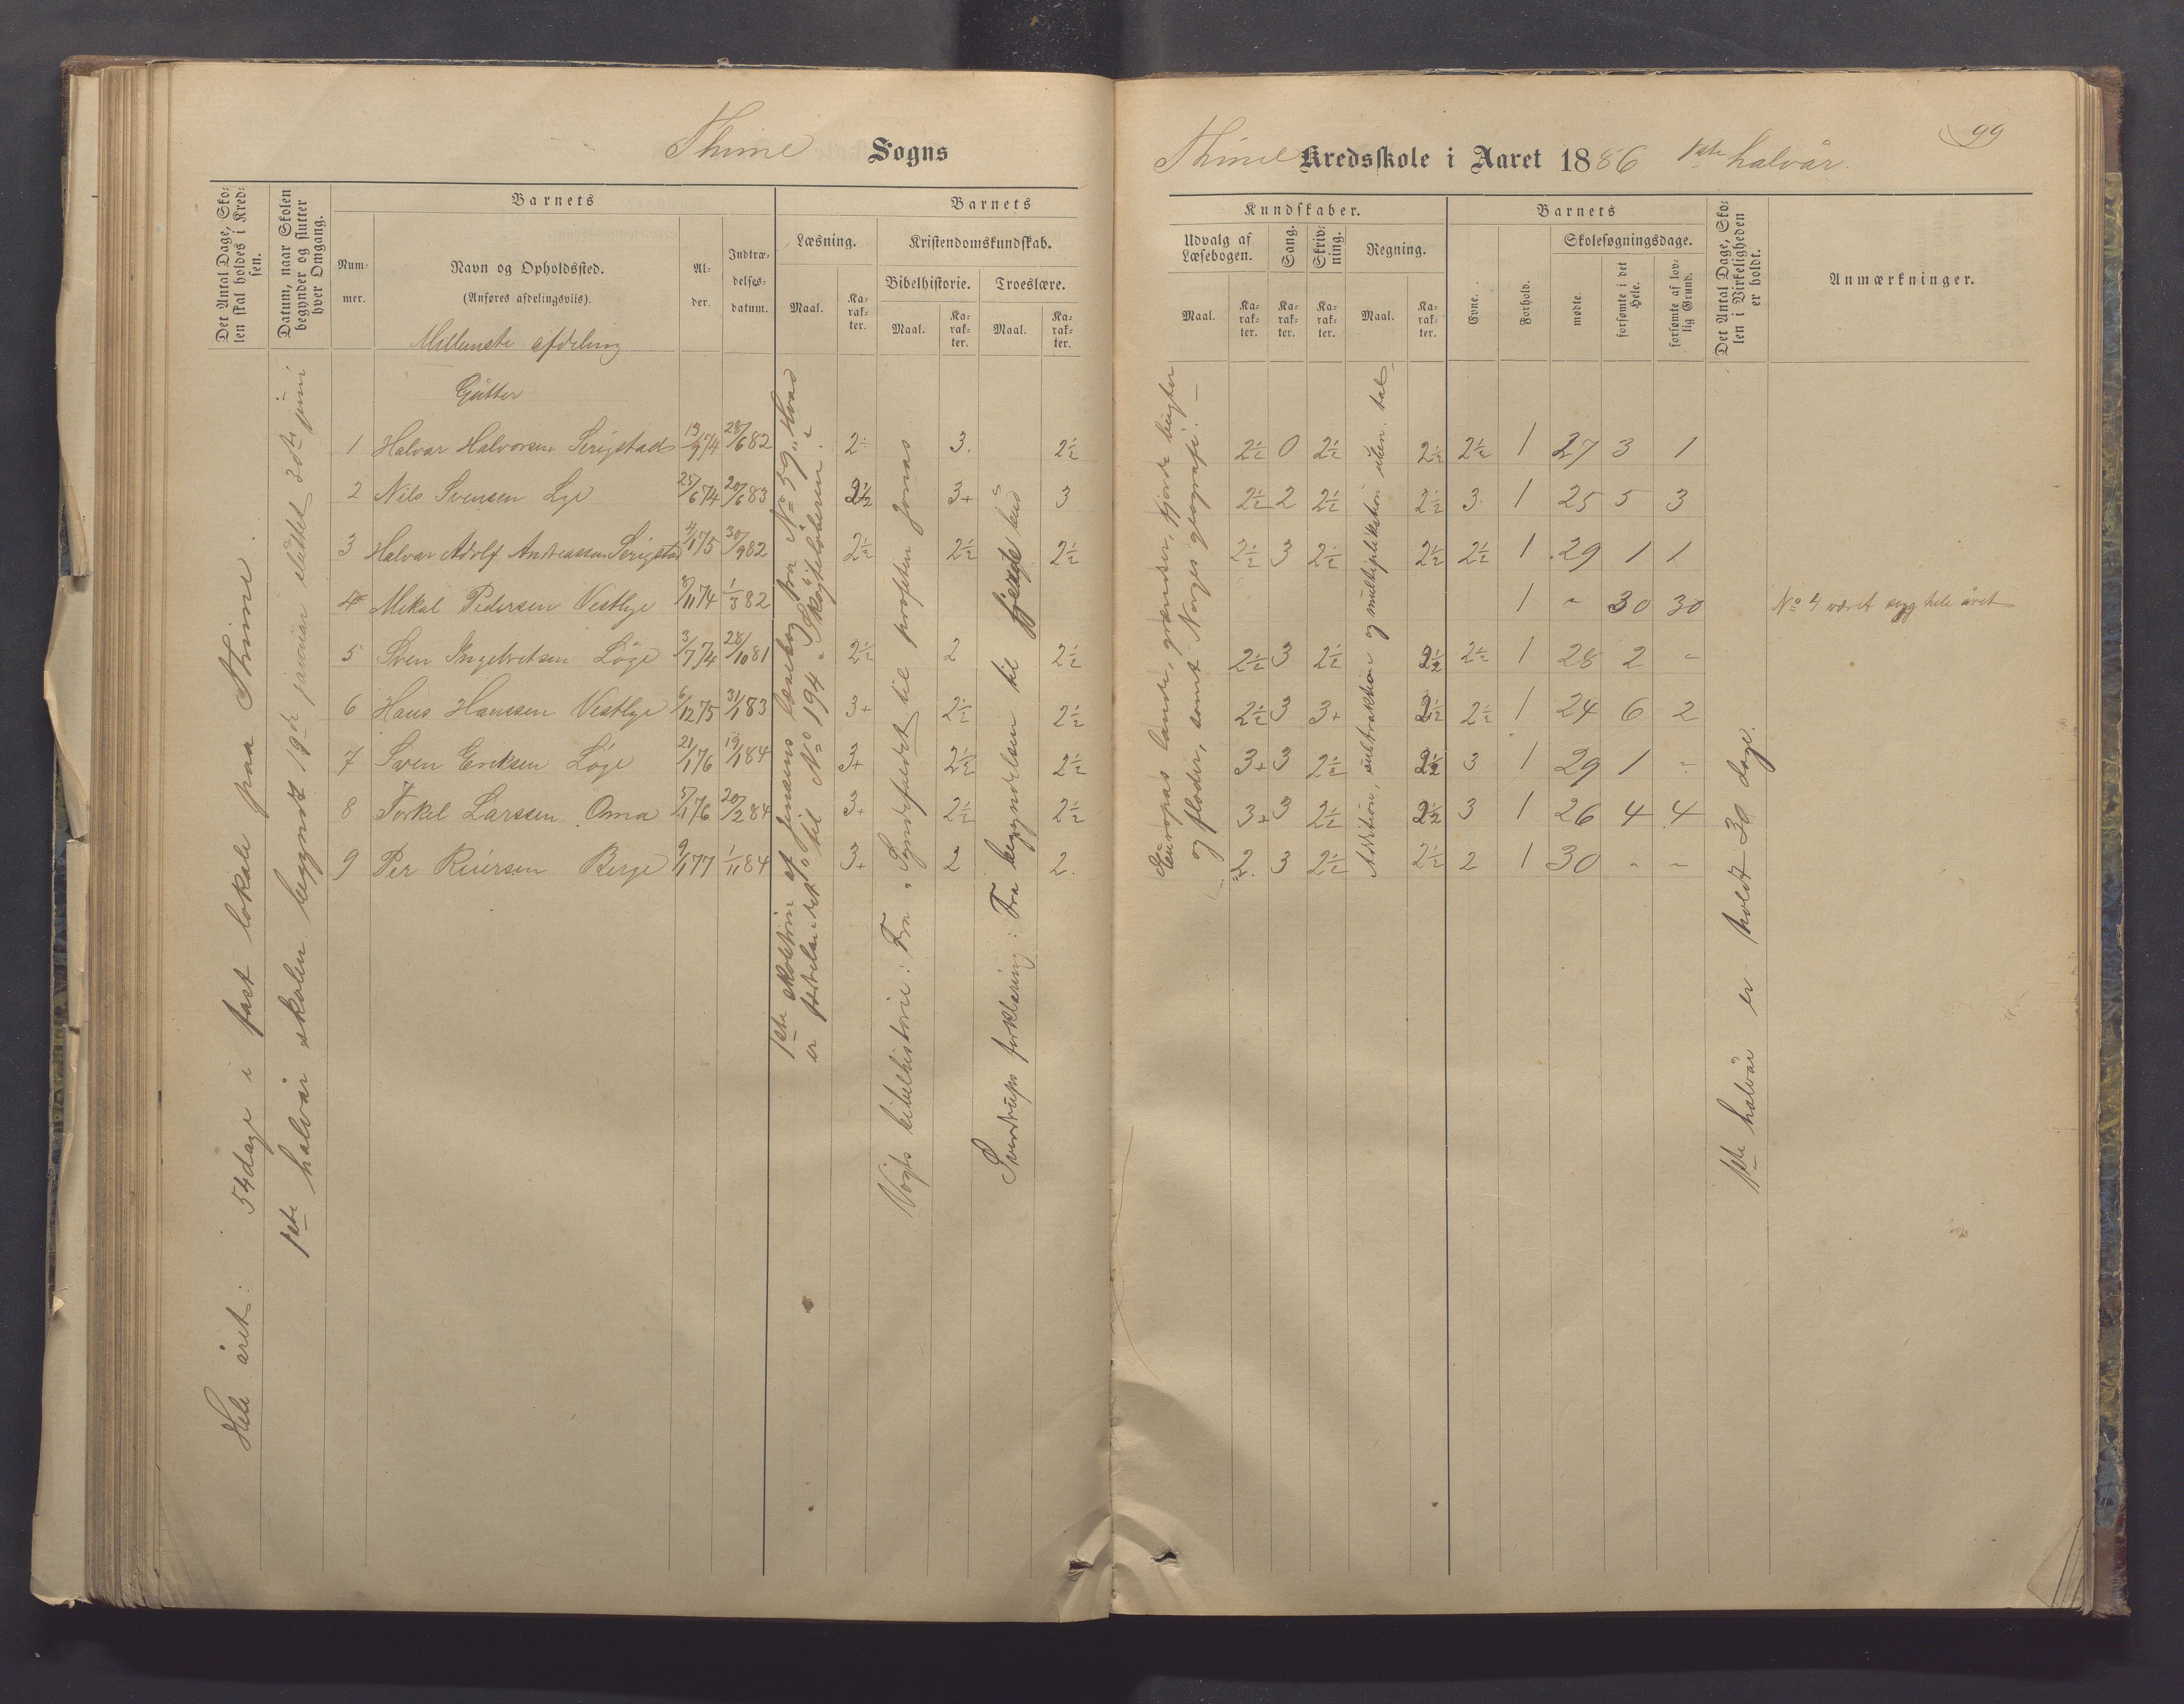 Thime Sogns
Thime Kredsskole i Aaret 1886 1ste halvår.
99
Det Antal Dage, Sko-
len skal holdes i Kred-
sen.
Datum, naar Skolen
begynder og slutter
hver Omgang.
Barnets
Num-
mer.
Navn og Opholdssted.
(Anføres afdelingsviis).
Mellemste afdeling
Al-
der.
Indtræ-
delses-
datum.
Barnets
Læsning.
Maal.
Ka-
rak-
ter.
Kristendomskundskab.
Bibelhistorie.
Maal.
Ka-
rak-
ter.
Troeslære.
Maal.
Ka-
rak-
ter.
Kundskaber.
Udvalg af
Læsebogen.
Maal.
Ka-
rak-
ter.
Sang.
Ka-
rak-
ter.
Skriv-
ning.
Ka-
rak-
ter.
Regning.
Maal.
Ka-
rak-
ter.
Barnets
Evne.
Forhold.
Skolesøgningsdage.
mødte.
forsømte i det
Hele.
forsømte af lov-
lig Grund.
Det Antal Dage, Sko-
len i Virkeligheden
er holdt.
Anmærkninger.
Hele året: 54 dage i fast lokale paa Thime.
1ste halvår skolen begyndt 19de januar sluttet 30te juni
Gutter
1 Halvar Halvorsen Serigstad 13/9 74 28/6 82 2 3. 2½ 2½ 0 2½ 2½ 2½ 1 27 3 1
2 Nils Svensen Lye 25/6 74 20/6 83 2½ 3+ 3 2½ 2 2½ 2½ 3 1 25 5 3
3 Halvar Adolf Andreassen Serigstad 4/1 75 30/9 82 2½ 2½ 2½ 2½ 3 2½ 2½ 2½ 1 29 1 1
4 Mikal Pedersen Vestlye 8/11 74 1/3 82 1 - 30 30 No 4 været syg hele året
5 Sven Ingebretsen Löge 3/7 74 28/10 81 2½ 2 2½ 2½ 3 2½ 2½ 2½ 1 28 2 -
6 Hans Hanssen Vestlye 6/12 75 31/1 83 3+ 2½ 2½ 2½ 3 3+ 2½ 2½ 1 24 6 2
7 Sven Eriksen Löge 21/1 76 19/1 84 3+ 2½ 2½ 3+ 3 2½ 2½ 3 1 29 1 -
8 Torkel Larssen Oma 5/1 76 20/2 84 3+ 2½ 2½ 3+ 3 2½ 2½ 3 1 26 4 4
9 Per Reiersen Berge 9/1 77 1/11 84 3+ 2 2. 2. 3 2½ 2½ 2 1 30 - -
1ste skoletrin af Jensens læsebog fra No 59 „Hvad
er fædrelandet" til No 194 „Skøjteløberen".
Vogts bibelhistorie: Fra „Syndefaldet" til profeten Jonas.
Sverdrups forklaring: Fra begyndelsen til fjerde bud
Europas lande, grændser, fjorde bugter
og floder, samt Norges geografi.
Addition, subtraktion og multiplikation uben. tal
1ste halvår er holdt 30 dage.